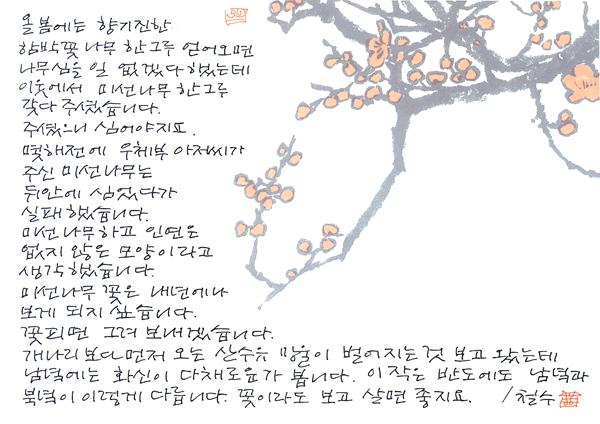 올봄에는 향기진한
함박꽃 나무 한그루 얻어오면
나무심을 일 없겠다 했는데
이웃에서 미선나무 한그루
갖다 주셨습니다.
주셨으니 심어야지요.
몇해전에 우체부 아저씨가
주신 미선나무는
뒤안에 심었다가
실패했습니다.
미선나무하고 인연은
없지 않은 모양이라고
생각했습니다.
미선나무 꽃은 내년에나
보게 되지 싶습니다.
꽃피면 그려 보내겠습니다.
개나리보다 먼저 오는 산수유 망울이 벌어지는 것 보고 왔는데
남녘에는 화신이 다채로운가 봅니다. 이 작은 반도에도 남녘과
북녘이 이렇게 다릅니다. 꽃이라도 보고 살면 좋지요. /철수